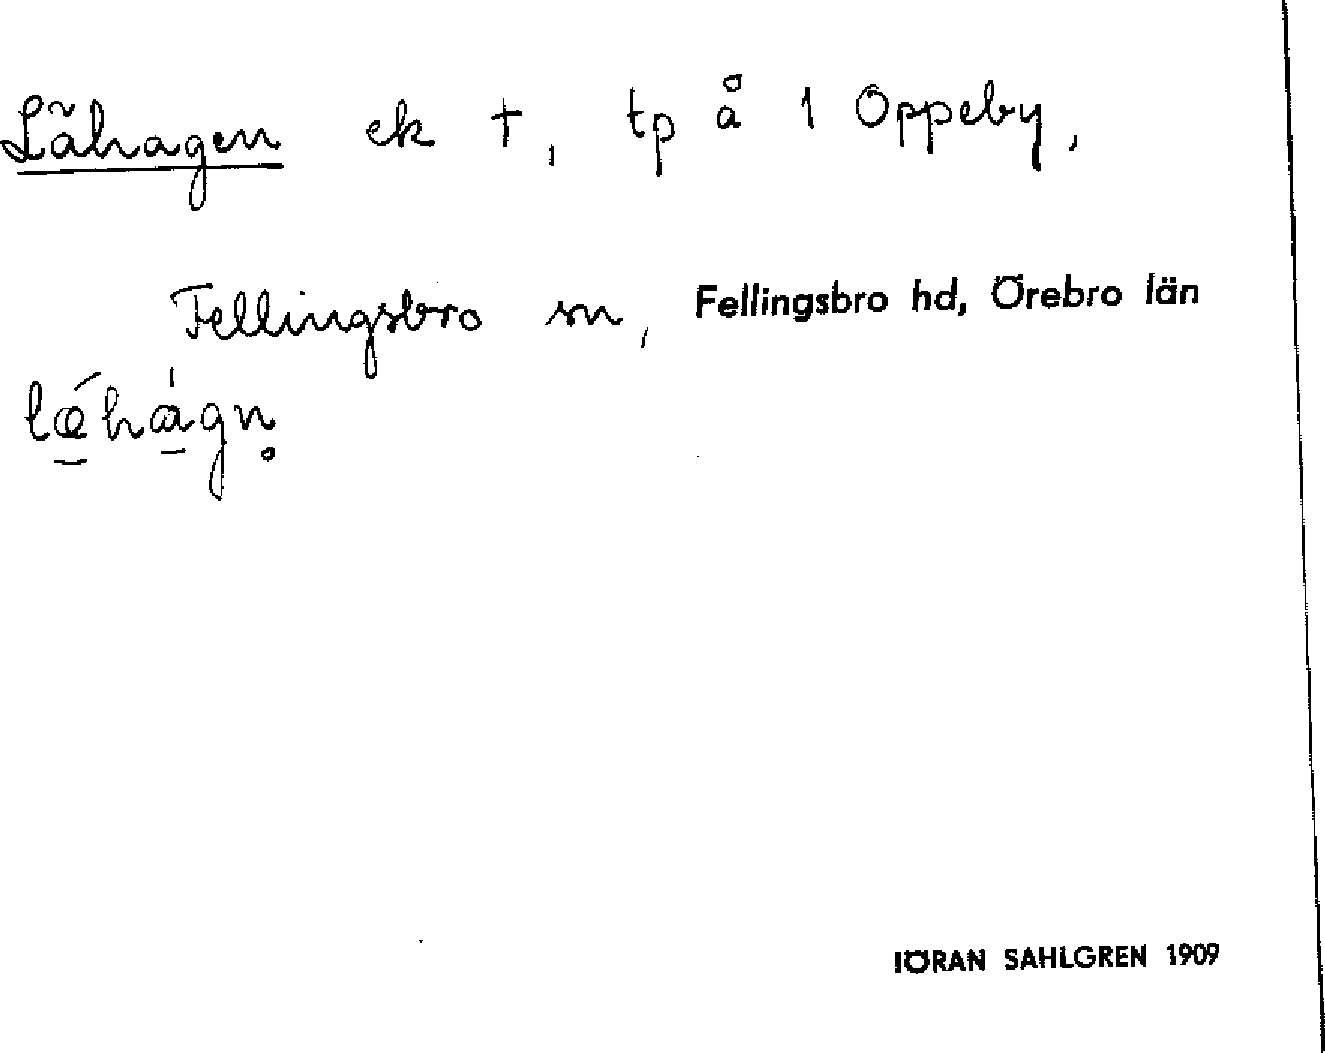 Lähagen ek †, tp å 1 Oppeby,
Fellingsbro sn, Fellingsbro hd, Örebro län
JÖRAN SAHLGREN 1909